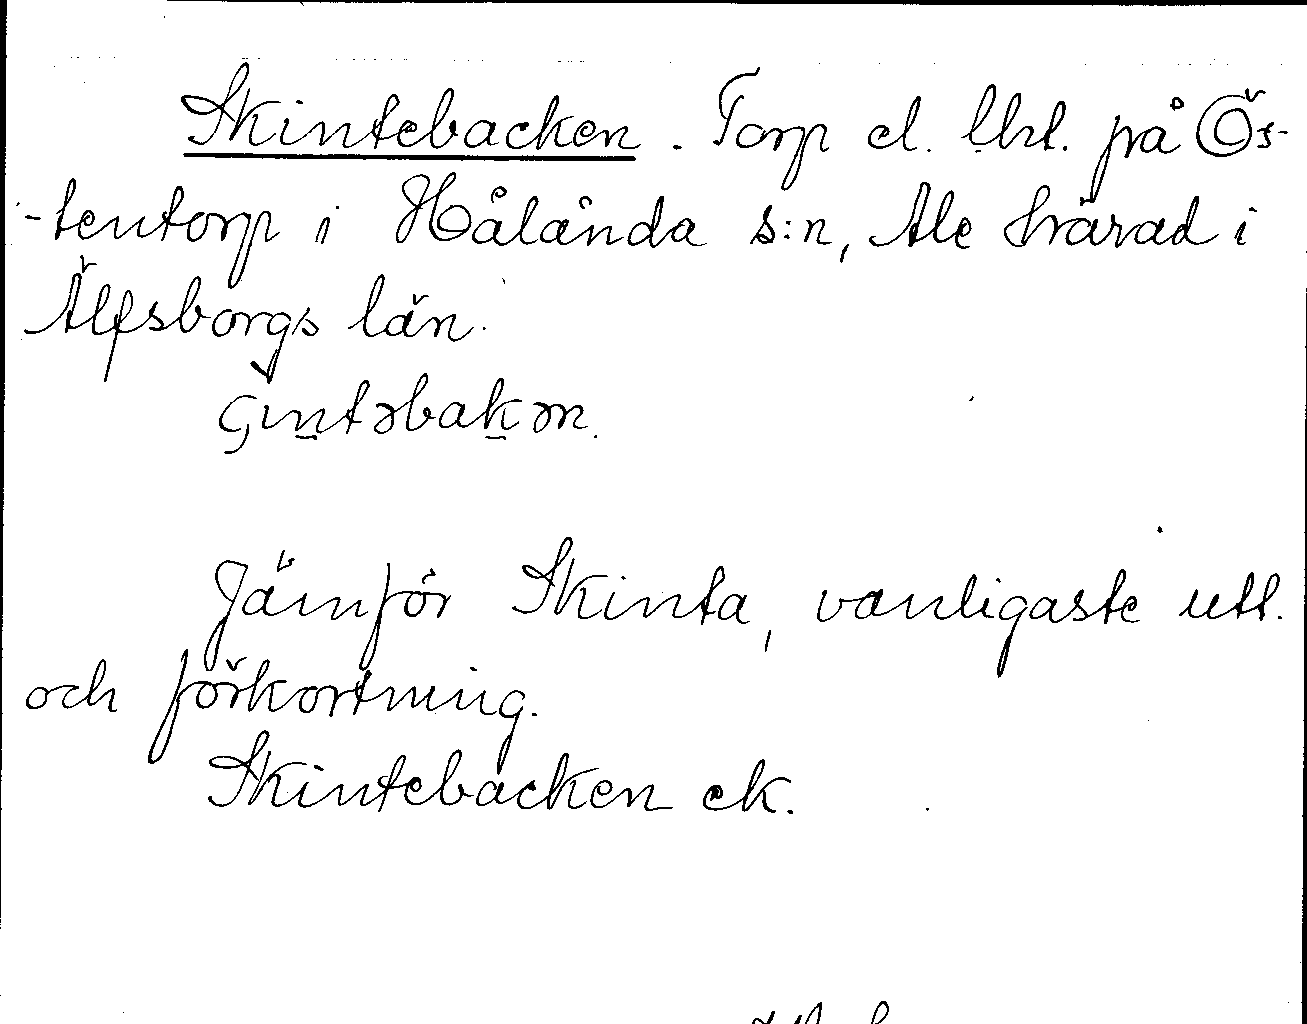 Skintebacken. Torp el. lht. på Ös-
-tentorp i Hålanda s:n, Ale härad i
Älfsborgs län.
Jämför Skinta, vanligaste utt.
och förkortning.
Skintebacken ek.